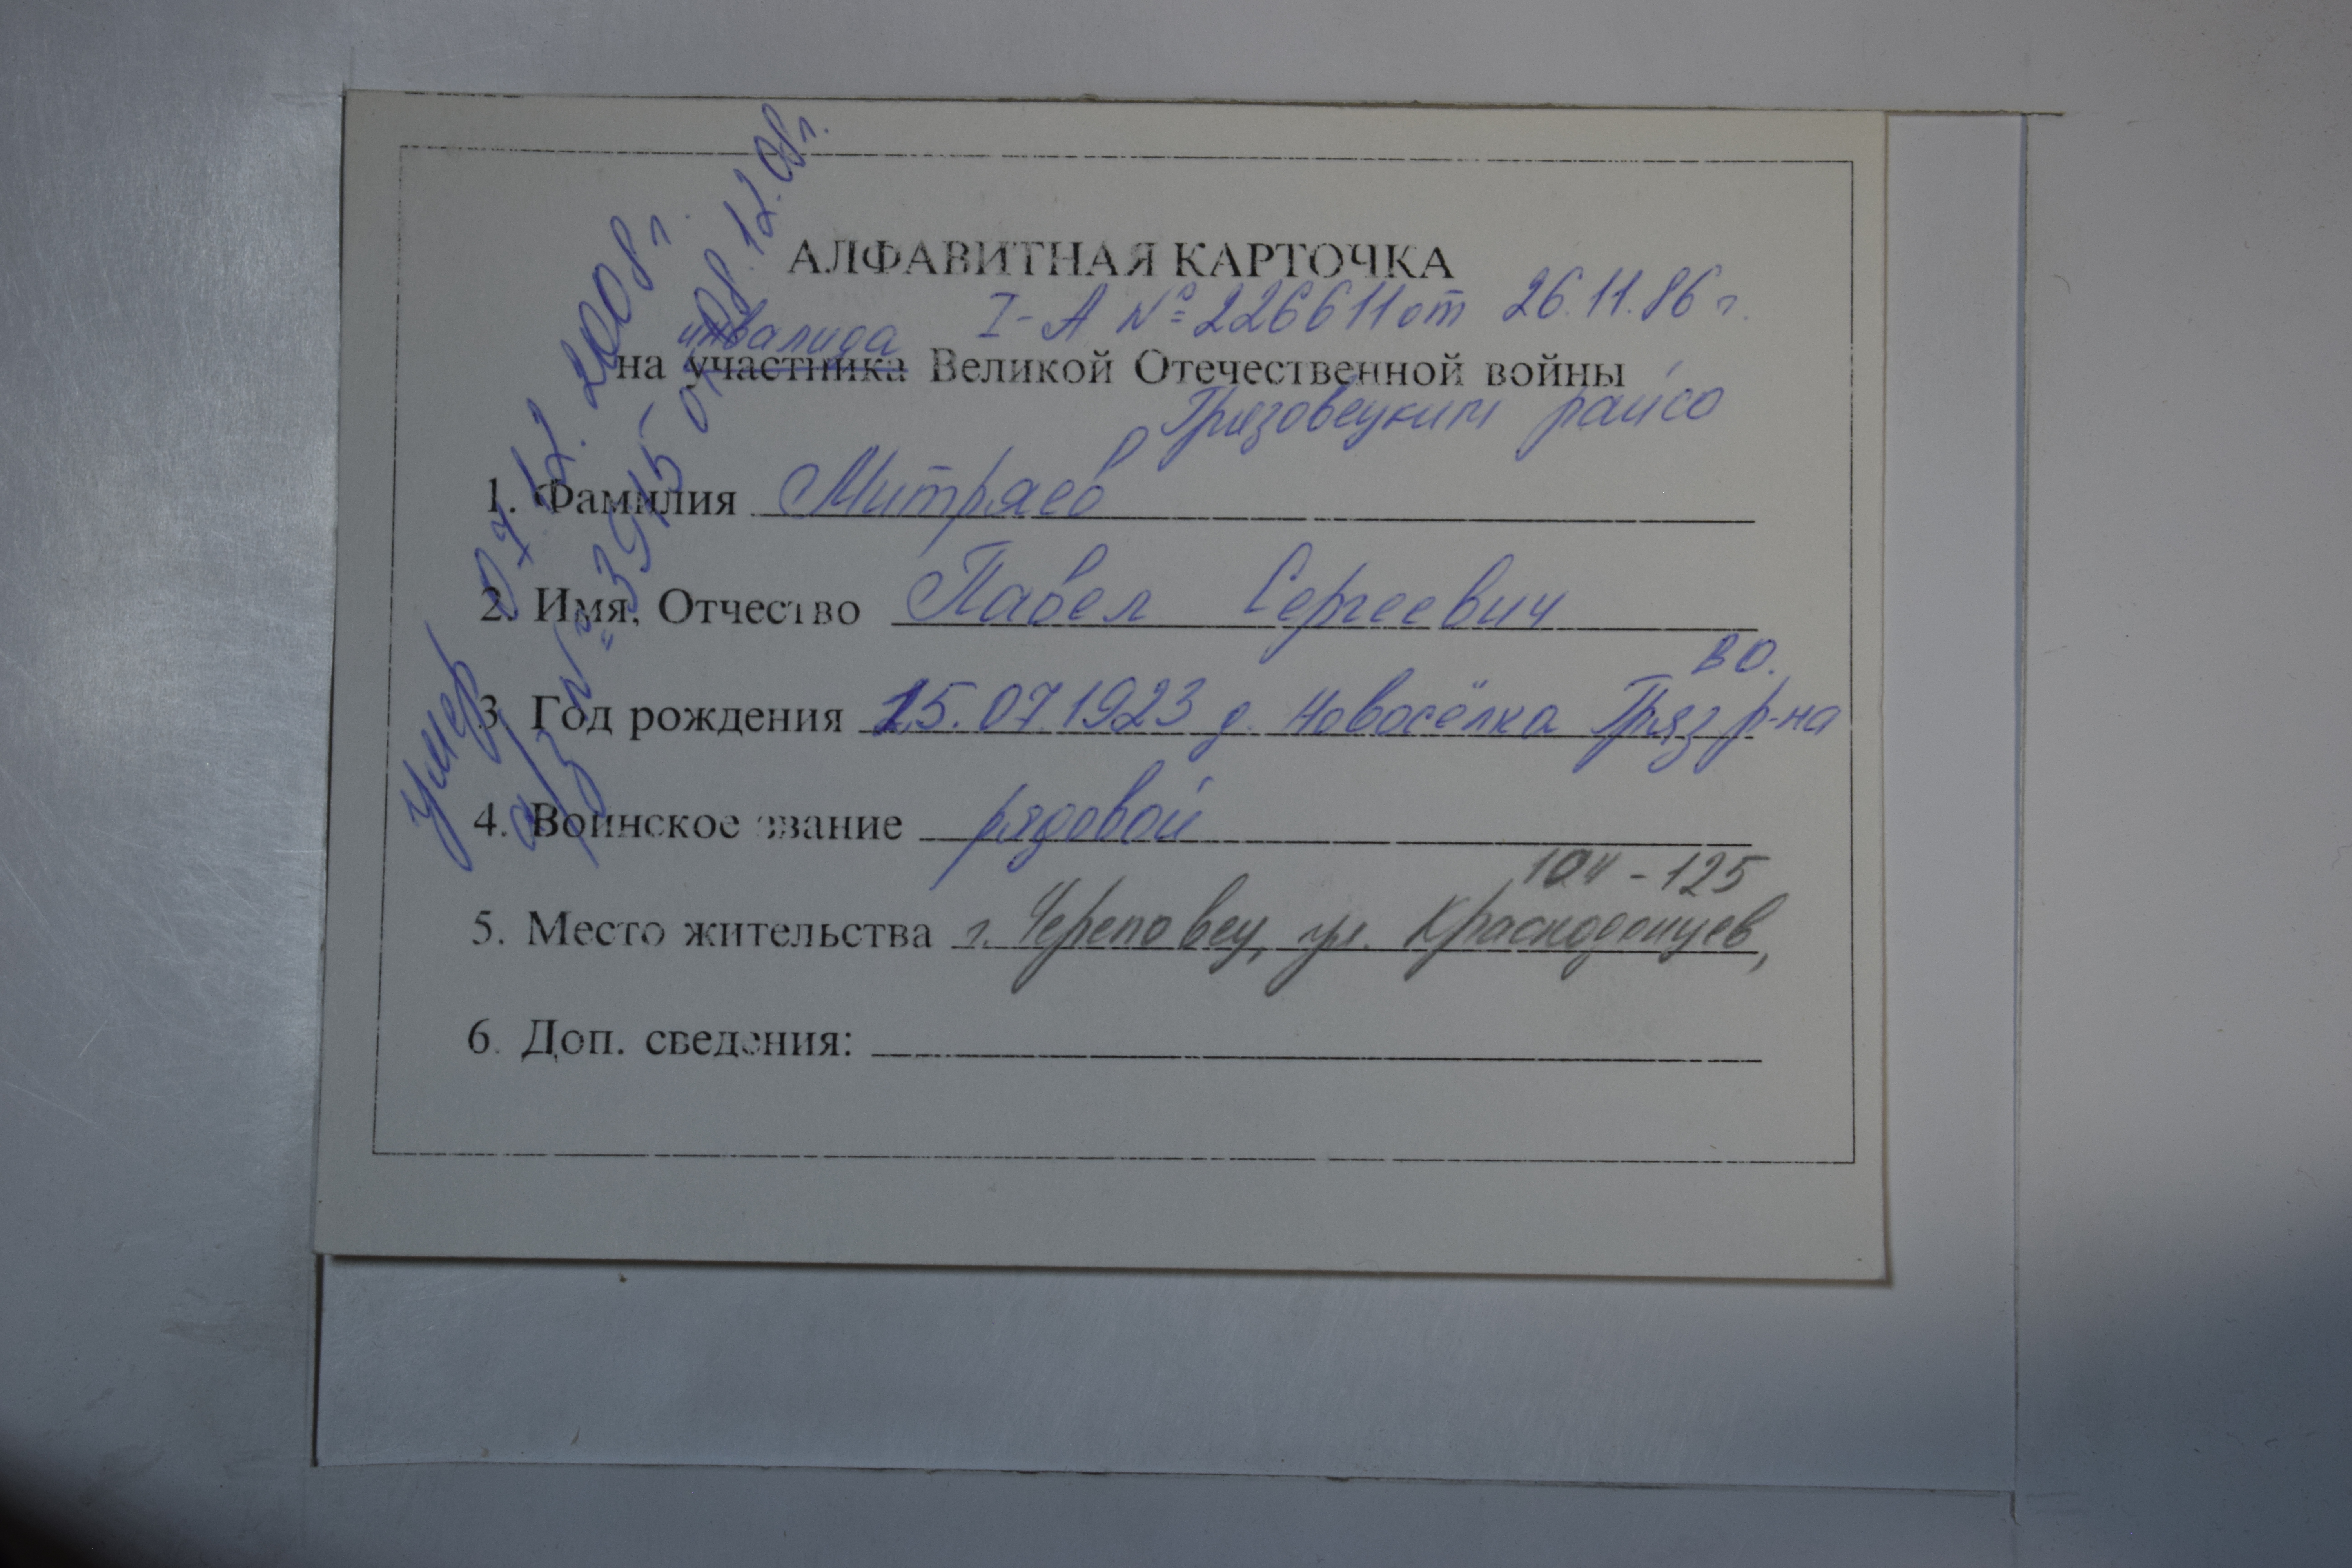 АЛФАВИТНАЯ КАРТОЧКА
I-А № 226611 от 26.11.86 г.
инвалида
на участника Великой Отечественной войны
Грязовецким райсо
1. Фамилия Митряев
2. Имя, Отчество Павел Сергеевич
ВО.
3. Год рождения 15.07.1923 д. Новосёлка Гряз р-на
4. Воинское звание рядовой
104-125
5. Место жительства г. Череповец, ул. Краснодонцев,
6. Доп. сведения:
умер 07.12.2008 г.
а/з № 3915 от 08.12.08 г.